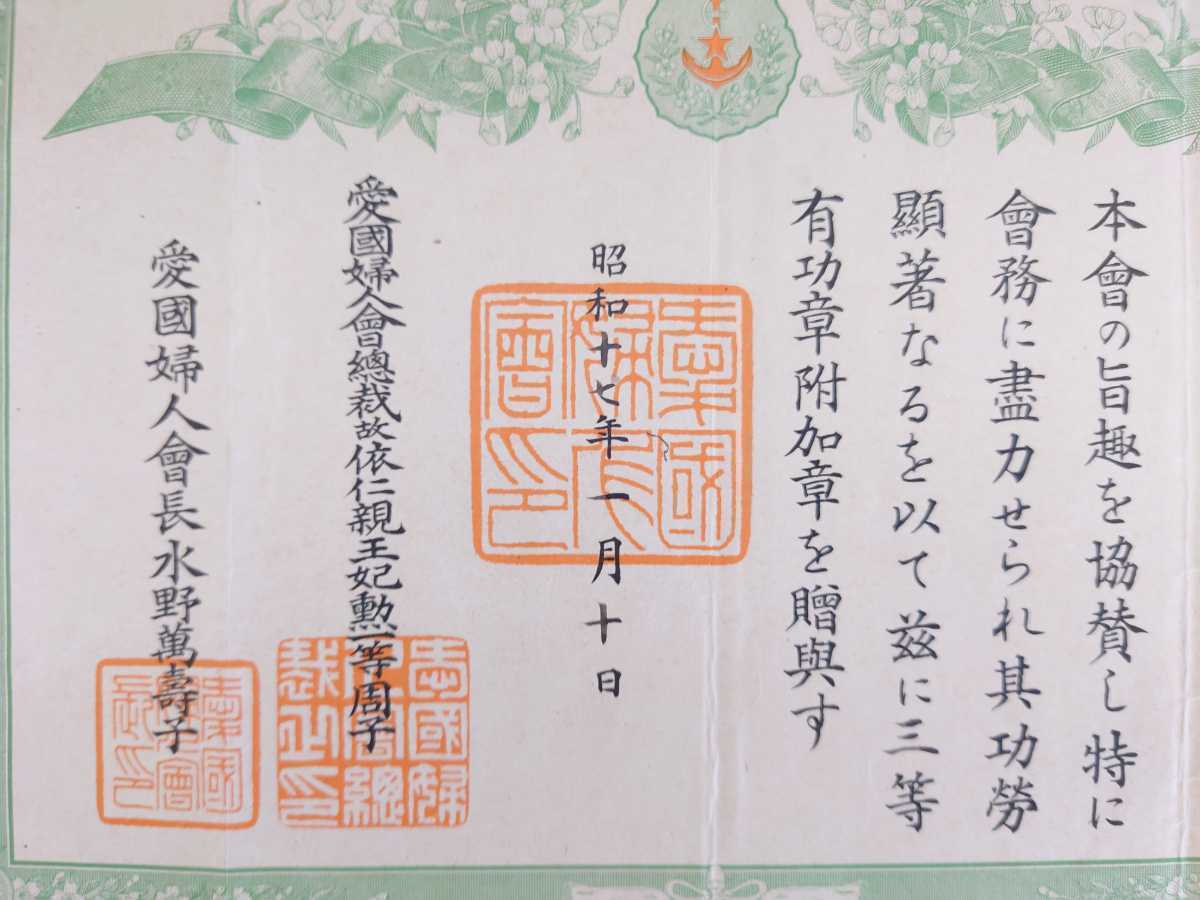 本會の旨趣を協賛し特に
會務に盡力せられ其功勞
顯著なるを以て茲に三等
有功章附加章を贈與す
昭和十七年一月十日
愛國婦人會總裁故依仁親王妃勲一等周子
愛國婦人會長水野萬壽子
愛國婦人會印
愛國婦人會總裁之印